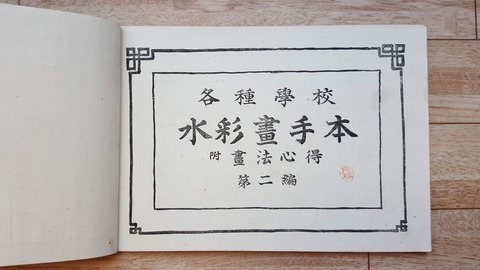 各種學校
水彩畫手本
附畫法心得
第二編